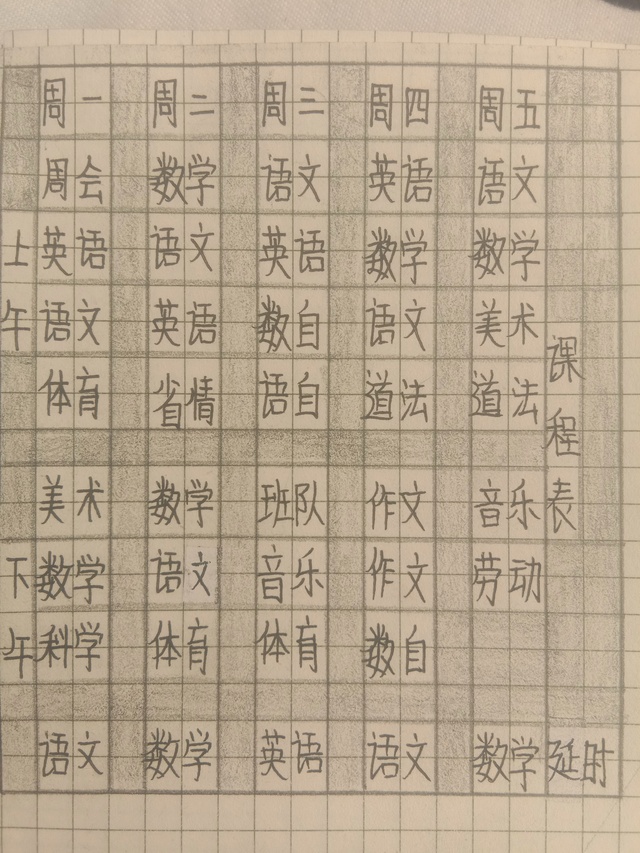 周一 周二 周三 周四 周五
周会 数学 语文 英语 语文
上 英语 语文 英语 数学 数学
午 语文 英语 数自 语文 美术
体育 省情 语自 道法 道法
美术 数学 班队 作文 音乐
下 数学 语文 音乐 作文 劳动
午 科学 体育 体育 数自
语文 数学 英语 语文 数学 延时
课程表